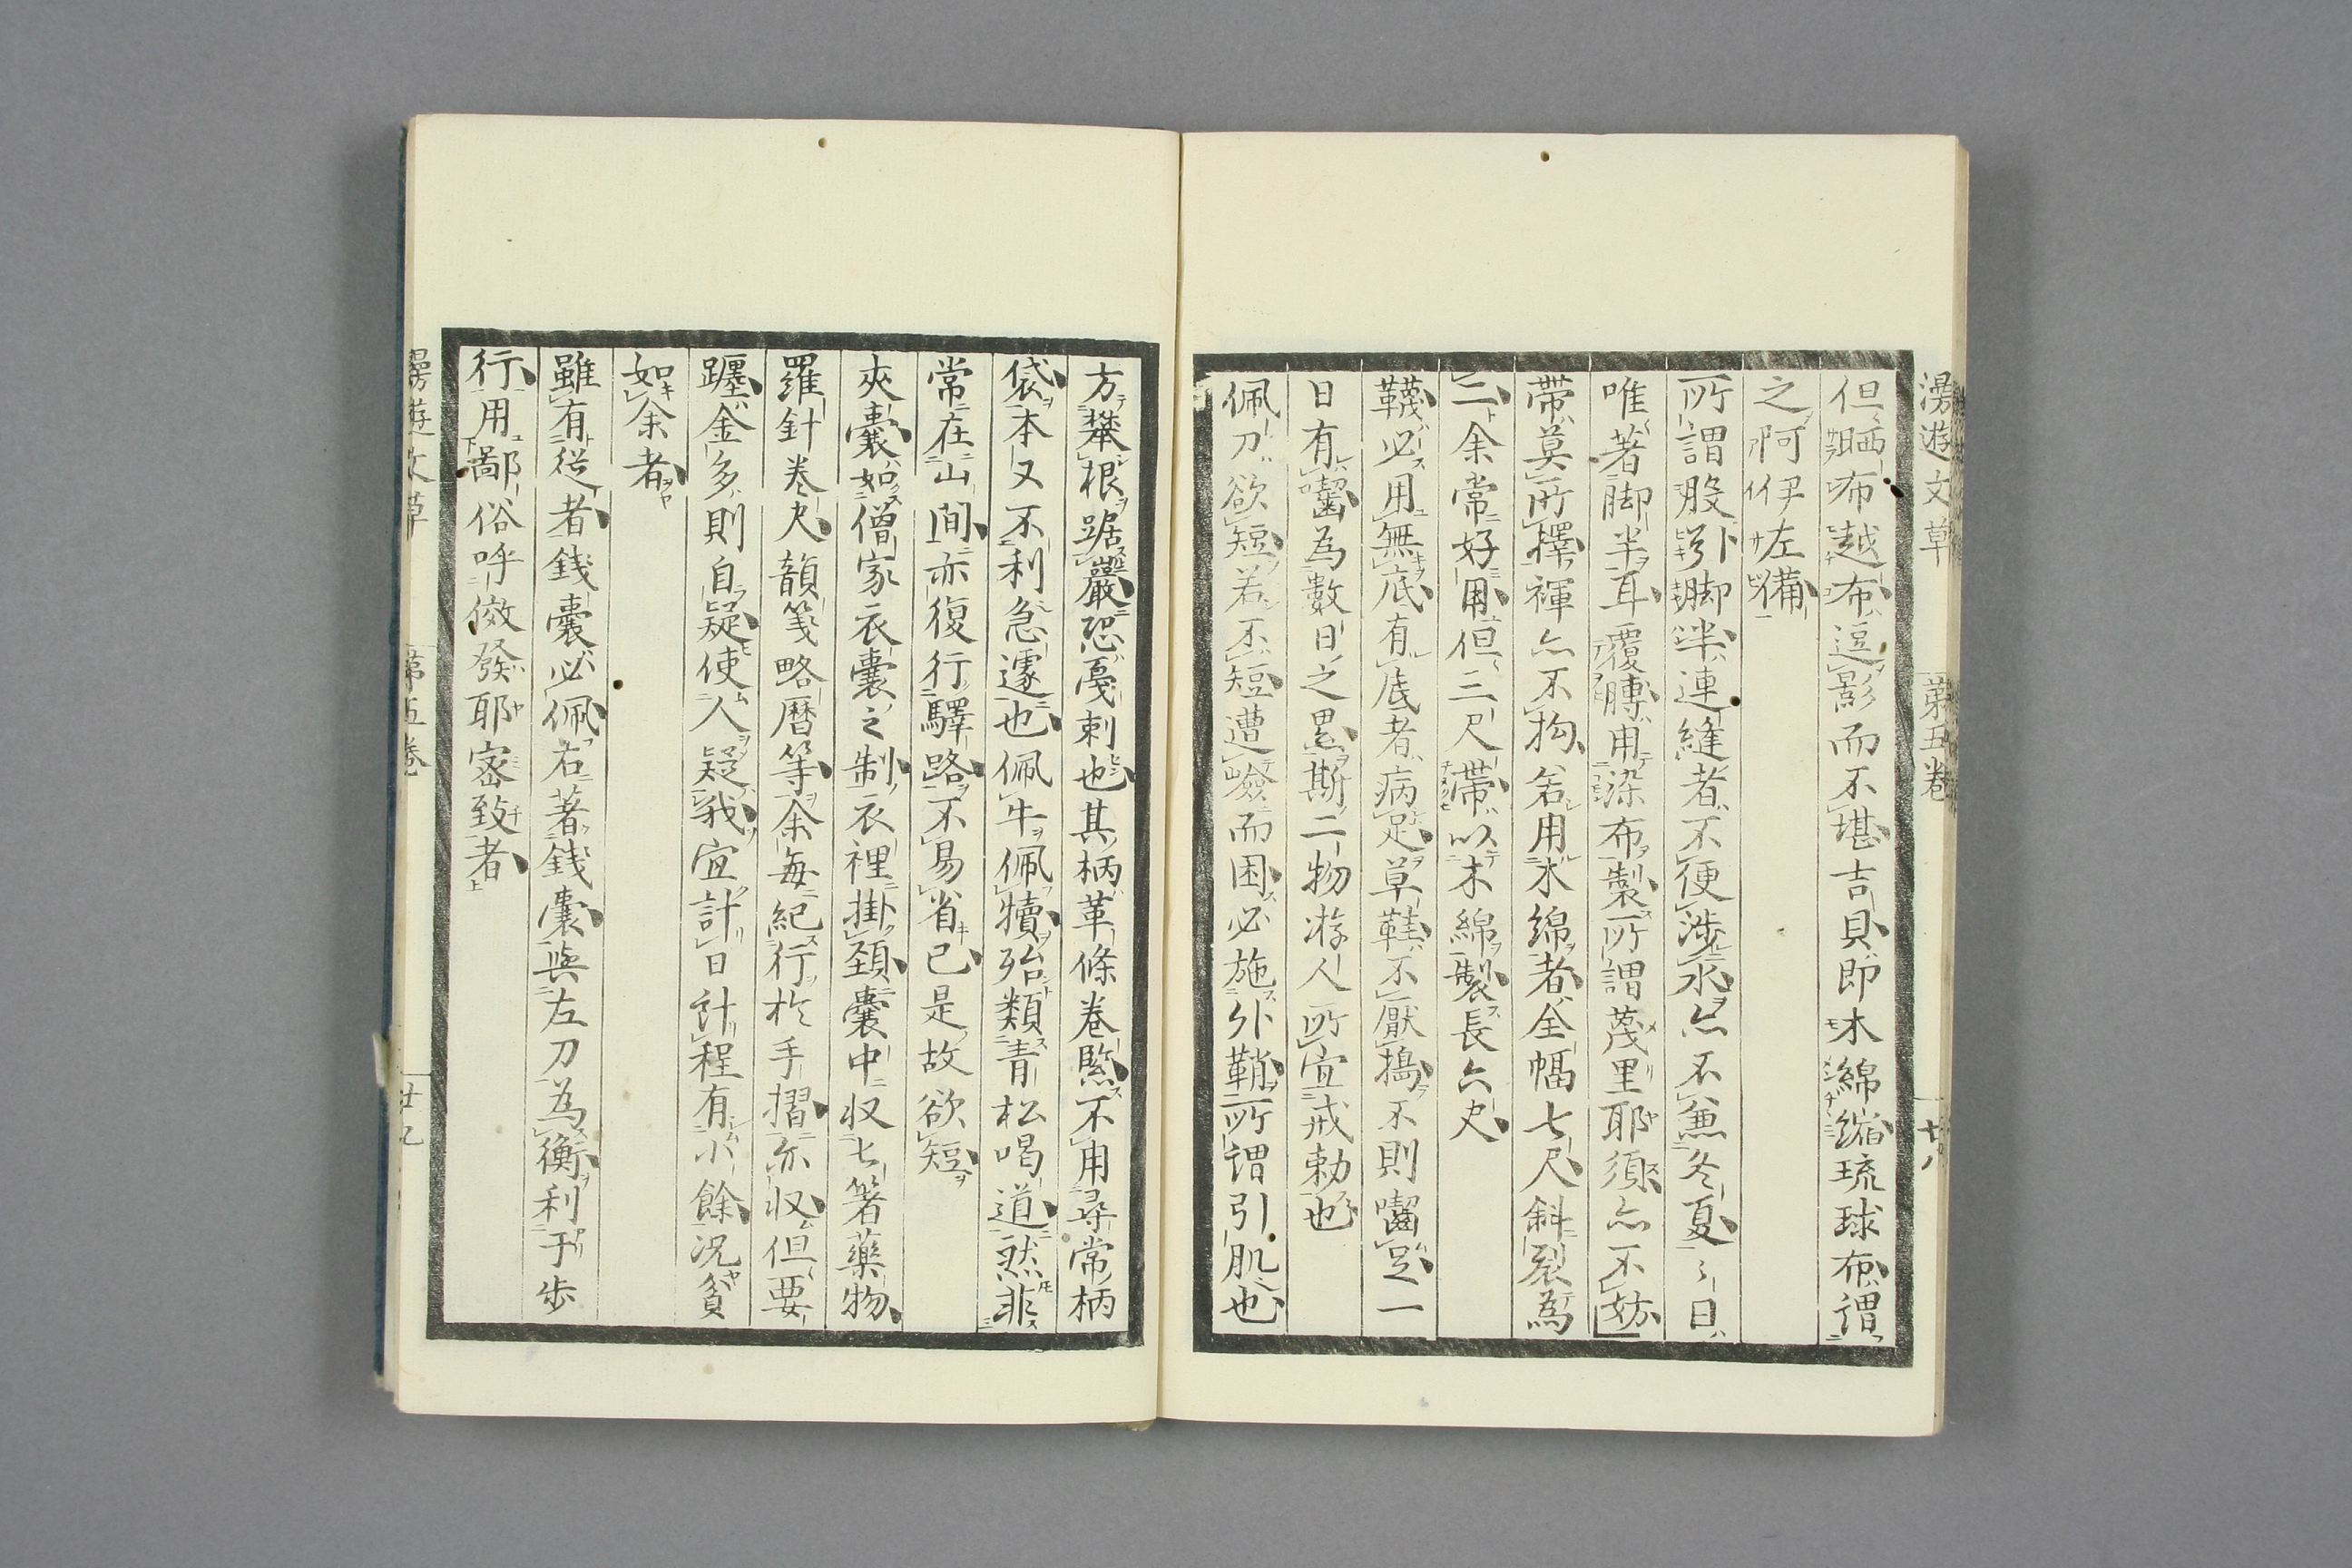 漫遊文草　第五卷　廿八
但晒布越布逗影而不堪吉貝即木綿縮琉球布謂
之阿伊左備
所謂股引脚半連縫者不便渉水亦不兼冬夏夏日
唯著脚半耳覆膊用染布製所謂莨里耶須亦不妨
帶莫所擇褌亦不拘若用氷綿者全幅七尺斜裂為
二余常好用但三尺帶以木綿製長六尺
韈必用無底有底者病足草鞋不厭搗不則囓足一
日有囓為數日之累斯二物游人所宜戒勅也
佩刀欲短若不短遭嶮而困必施外鞘所謂引肌也
方攀根踞巖恐戛刺也其柄革條卷㷔不用尋常柄
袋本又不利急遽也佩牛佩犢殆類青松喝道然非
常在山間亦復行驛路不易省已是故欲短
夾囊如僧家衣囊之制衣裡掛頚囊中収七箸藥物
羅針卷尺韻箋略暦等余每紀行於手摺亦収但要
躔金多則自疑使人疑我宜計日計程有小餘况貧
如余者
雖有從者錢囊必佩右著錢囊與左刀為衡利于歩
行用鄙俗呼傚發耶宻致者
漫遊文草　第五卷　廿九